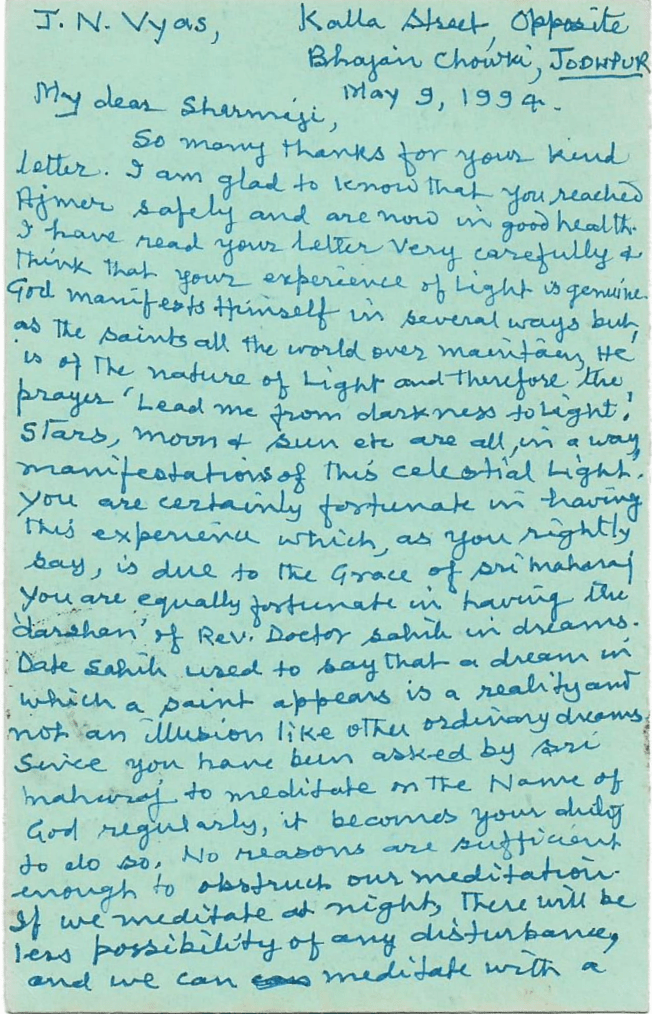 J. N. Vyas, Kalla Street, Opposite
Bhajan Chowki, JODHPUR
May 9, 1994.
My dear Sharmaji,
So many thanks for your kind
letter. I am glad to know that you reached
Ajmer safely and are now in good health.
I have read your letter very carefully &
think that your experience of Light is genuine.
God manifests Himself in several ways but,
as the saints all the world over maintain, He
is of the nature of Light and therefore the
prayer 'Lead me from darkness to light'.
Stars, moon & sun etc are all, in a way,
manifestations of this celestial Light.
You are certainly fortunate in having
this experience which, as you rightly
say, is due to the Grace of Sri Maharaj
You are equally fortunate in having the
'darshan' of Rev. Doctor Sahib in dreams.
Date Sahib used to say that a dream in
which a saint appears is a reality and
not an illusion like other ordinary dreams.
Since you have been asked by Sri
Maharaj to meditate on the Name of
God regularly, it becomes your duty
to do so. No reasons are sufficient
enough to obstruct our meditation.
If we meditate at night, there will be
less possibility of any disturbance,
and we can meditate with a